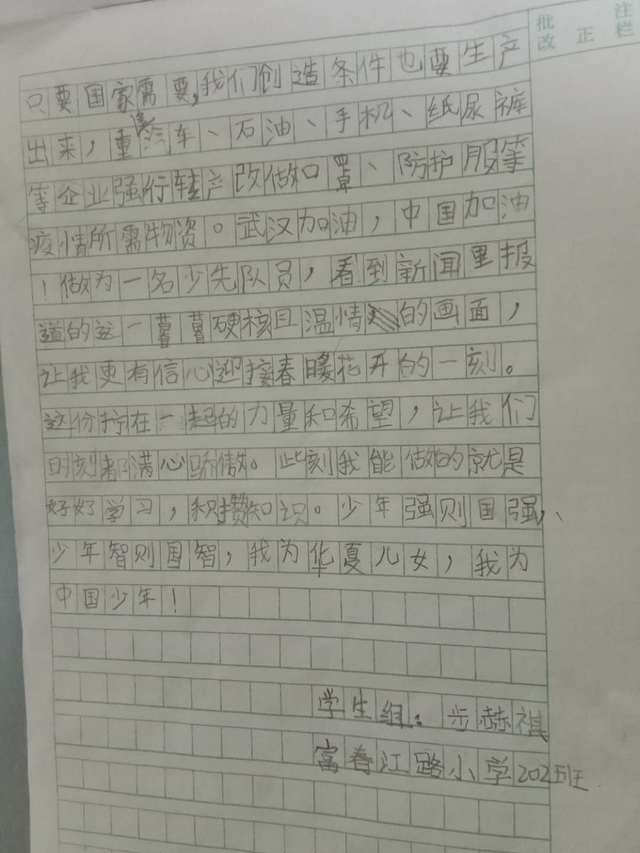 批 注
改 正 栏
只要国家需要,我们创造条件也要生产
出来，重汽车、石油、手机、纸尿裤
等企业强行转产改做口罩、防护服等
疫情所需物资。武汉加油，中国加油
！做为一名少先队员，看到新闻里报
道的这一幕幕硬核且温情的画面，
让我更有信心迎接春暖花开的一刻。
这份拧在一起的力量和希望，让我们
时刻都满心骄傲。此刻我能做的就是
好好学习，积攒知识。少年强则国强、
少年智则国智，我为华夏儿女，我为
中国少年！
学生组：步赫祺
富春江路小学202班